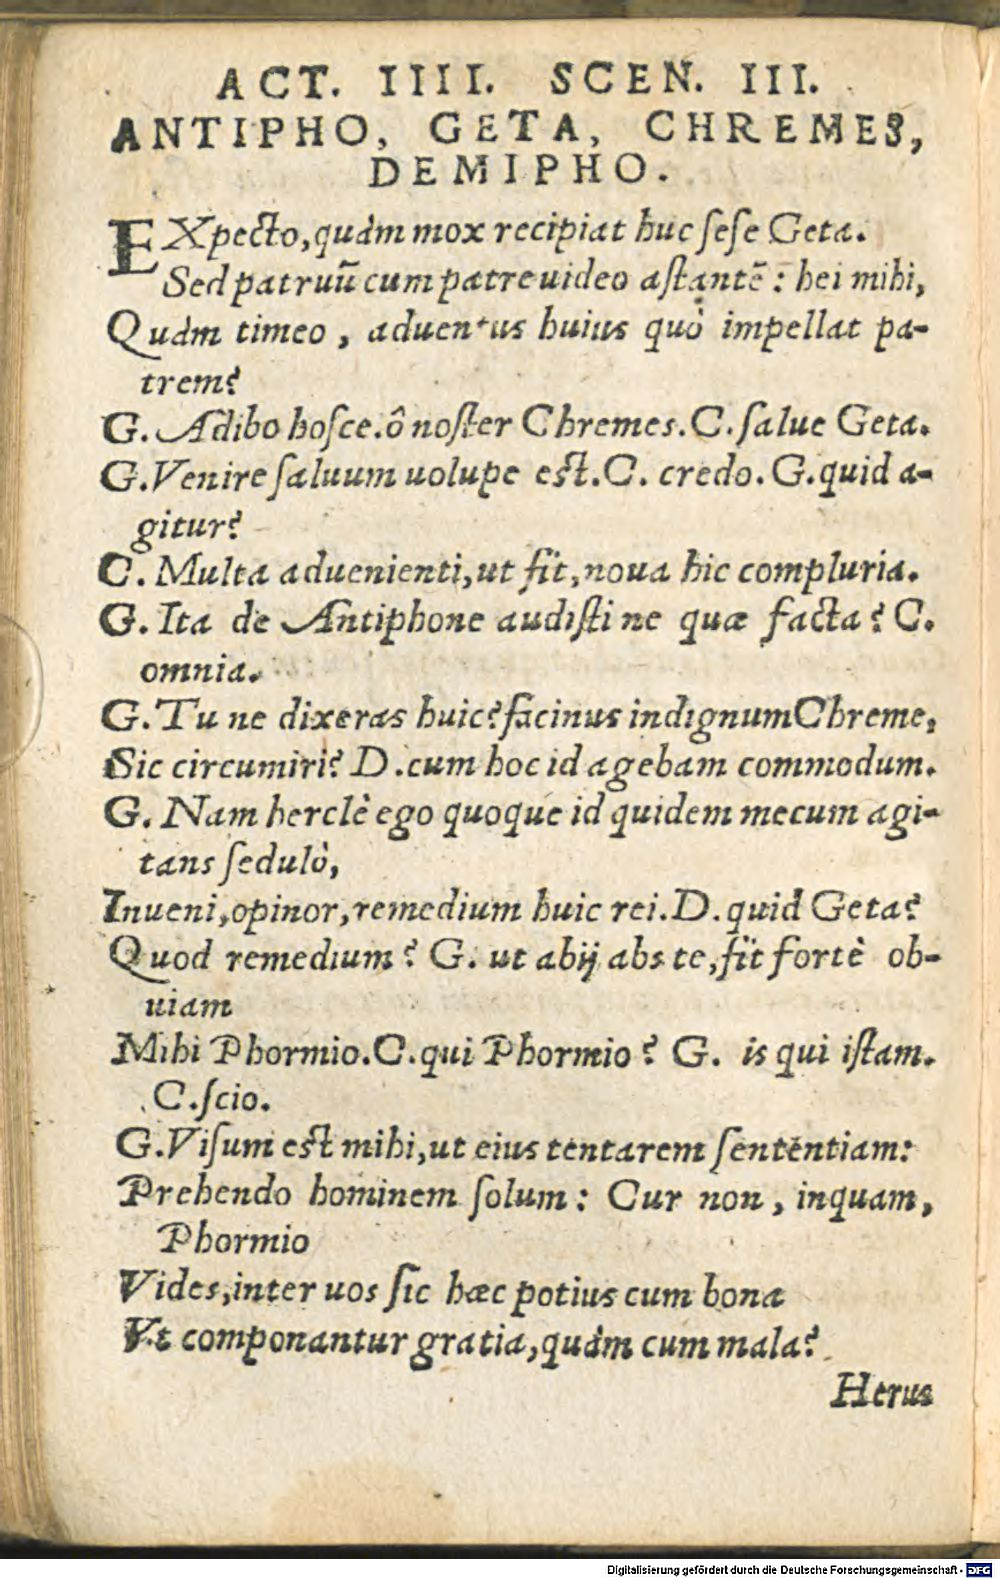 ACT. IIII. SCEN. III.
ANTIPHO, GETA, CHREMES,
DEMIPHO.
EXpecto, quàm mox recipiat huc ſeſe Geta.
Sed patruũ cum patre uideo aſtantẽ: hei mihi,
Quàm timeo, aduentus huius quò impellat pa-
trem?
G. Adibo hoſce. ô noſter Chremes. C. ſalue Geta.
G. Venire ſaluum uolupe eſt. C. credo. G. quid a-
gitur?
C. Multa aduenienti, ut fit, noua hic compluria.
G. Ita de Antiphone audiſti ne quæ facta? C.
omnia.
G. Tu ne dixeras huic? facinus indignum Chreme,
Sic circumiri? D. cum hoc id agebam commodum.
G. Nam herclè ego quoque id quidem mecum agi-
tans ſedulò,
Inueni, opinor, remedium huic rei. D. quid Geta?
Quod remedium? G. ut abij abs te, fit fortè ob-
uiam
Mihi Phormio. C. qui Phormio? G. is qui iſtam.
C. ſcio.
G. Viſum eſt mihi, ut eius tentarem ſententiam:
Prehendo hominem ſolum: Cur non, inquam,
Phormio
Vides, inter uos ſic hæc potius cum bona
Vt componantur gratia, quàm cum mala?
Herus
Digitalisierung gefördert durch die Deutsche Forschungsgemeinschaft - DFG